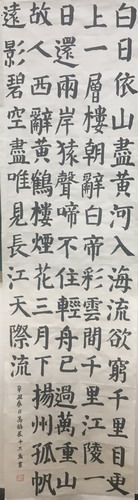 白日依山盡黃河入海流欲窮千里目更
上一層樓朝辭白帝彩雲間千里江陵一
日還兩岸猿聲啼不住輕舟已過萬重山
故人西辭黃鶴樓煙花三月下揚州孤帆
遠影碧空盡唯見長江天際流